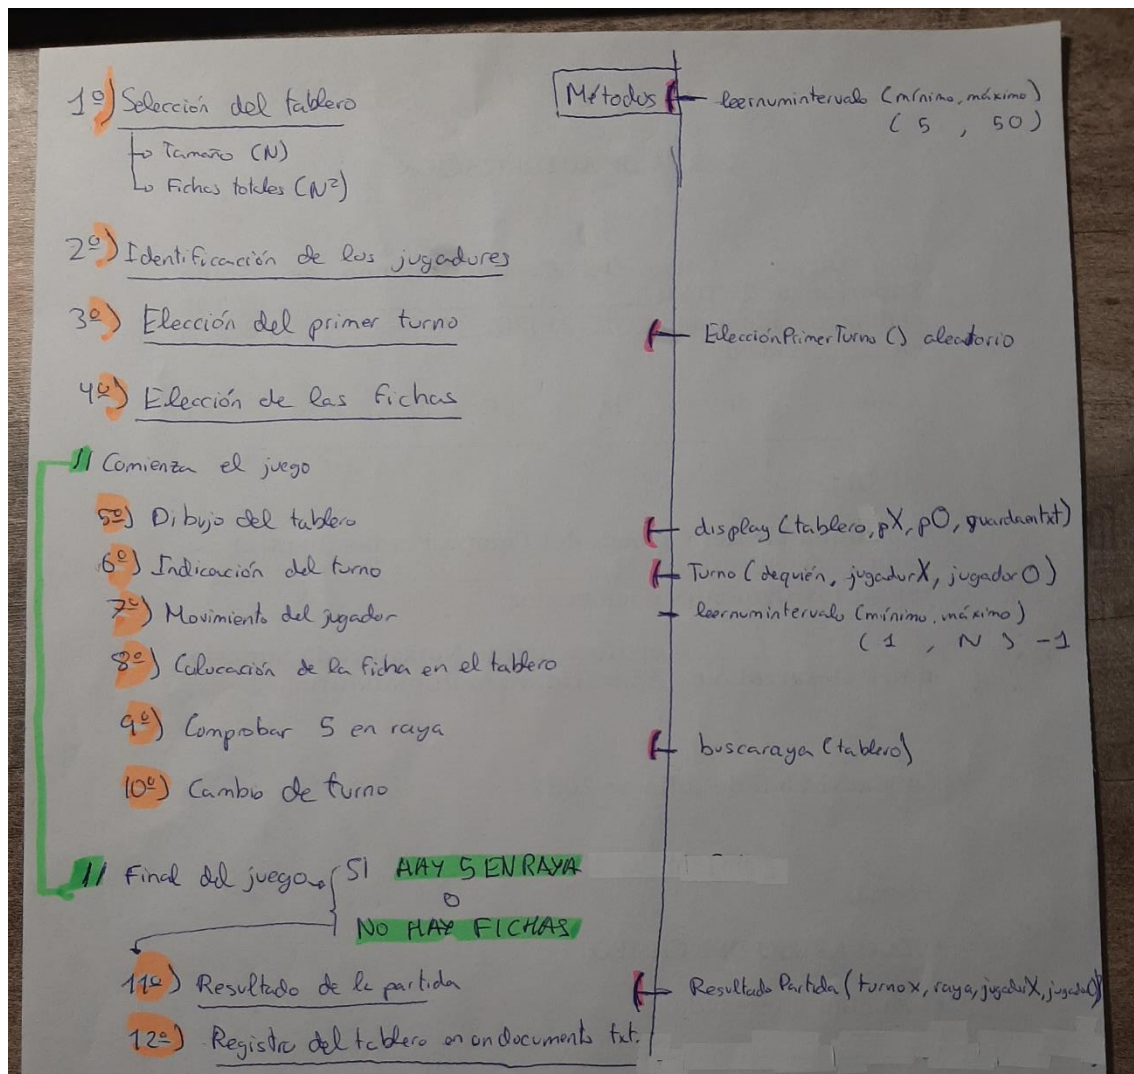 1º) Selección del tablero
Tamaño (N)
Fichas totales (N²)
2º) Identificación de los jugadores
3º) Elección del primer turno
4º) Elección de las fichas
// Comienza el juego
5º) Dibujo del tablero
6º) Indicación del turno
7º) Movimiento del jugador
8º) Colocación de la ficha en el tablero
9º) Comprobar 5 en raya
10º) Cambio de turno
// Final del juego → SI HAY 5 EN RAYA
O
NO HAY FICHAS
11º) Resultado de la partida
12º) Registro del tablero en un documento txt.
Métodos
leernumintervalo (mínimo, máximo)
( 5 , 50 )
ElecciónPrimerTurno () aleatorio
display (tablero, pX, pO, guardaentxt)
Turno (dequién, jugadorX, jugadorO)
leernumintervalo (mínimo, máximo)
( 1 , N ) -1
buscaraya (tablero)
Resultado Partida (turnox, raya, jugadorX, jugadorO)